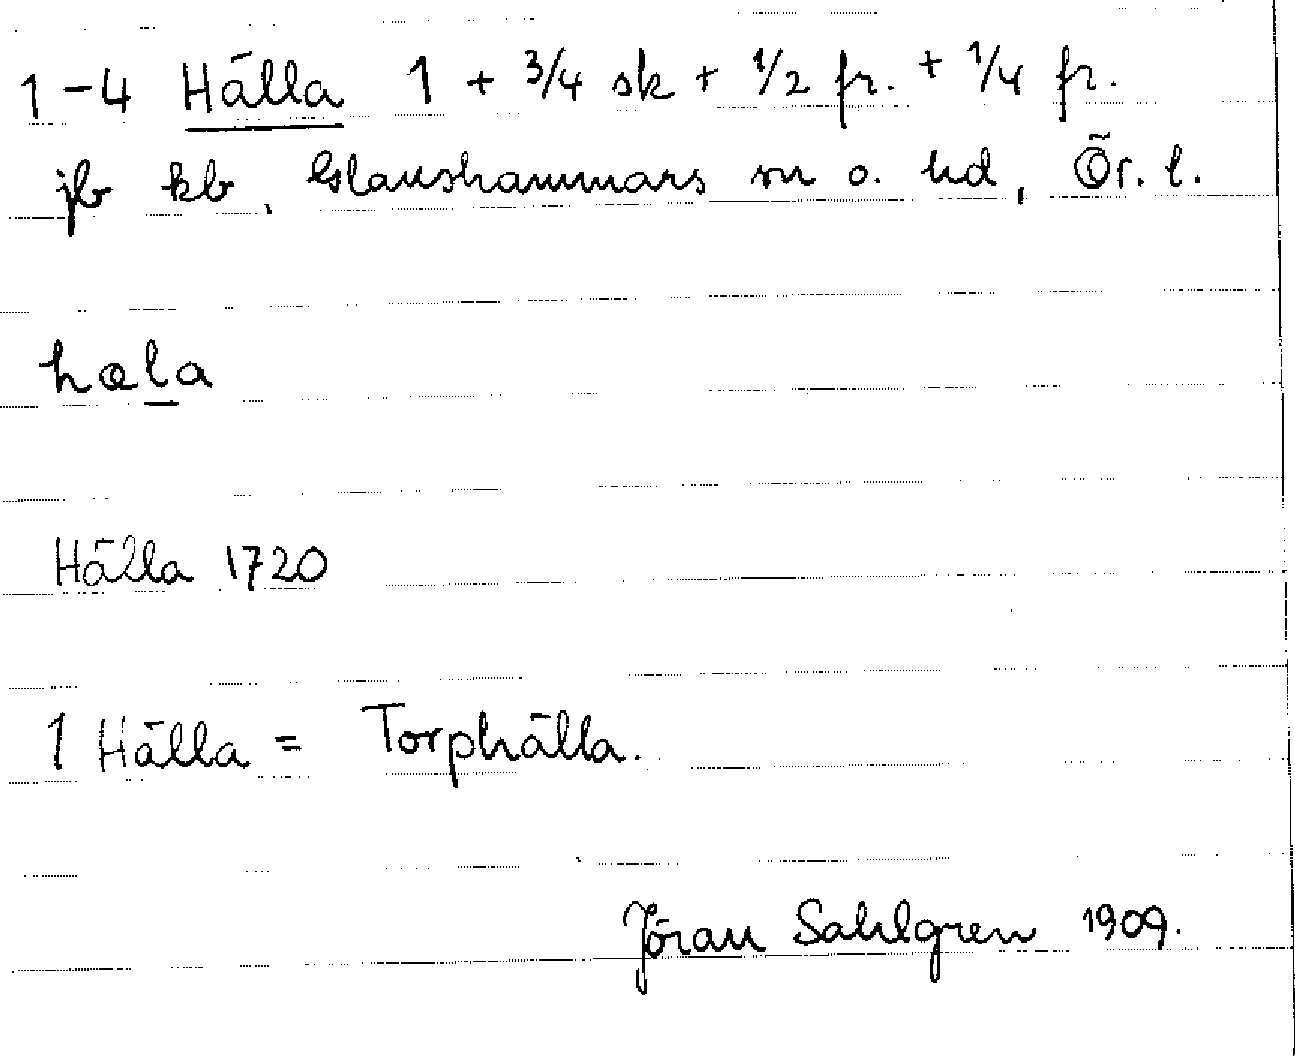 1-4 Hälla 1 + 3/4 sk + 1/2 fr. + 1/4 fr.
jb kb, Glanshammars sn o. hd, Ör. l.
hæla
Hälla 1720
1 Hälla = Torphälla.
Jöran Sahlgren 1909.